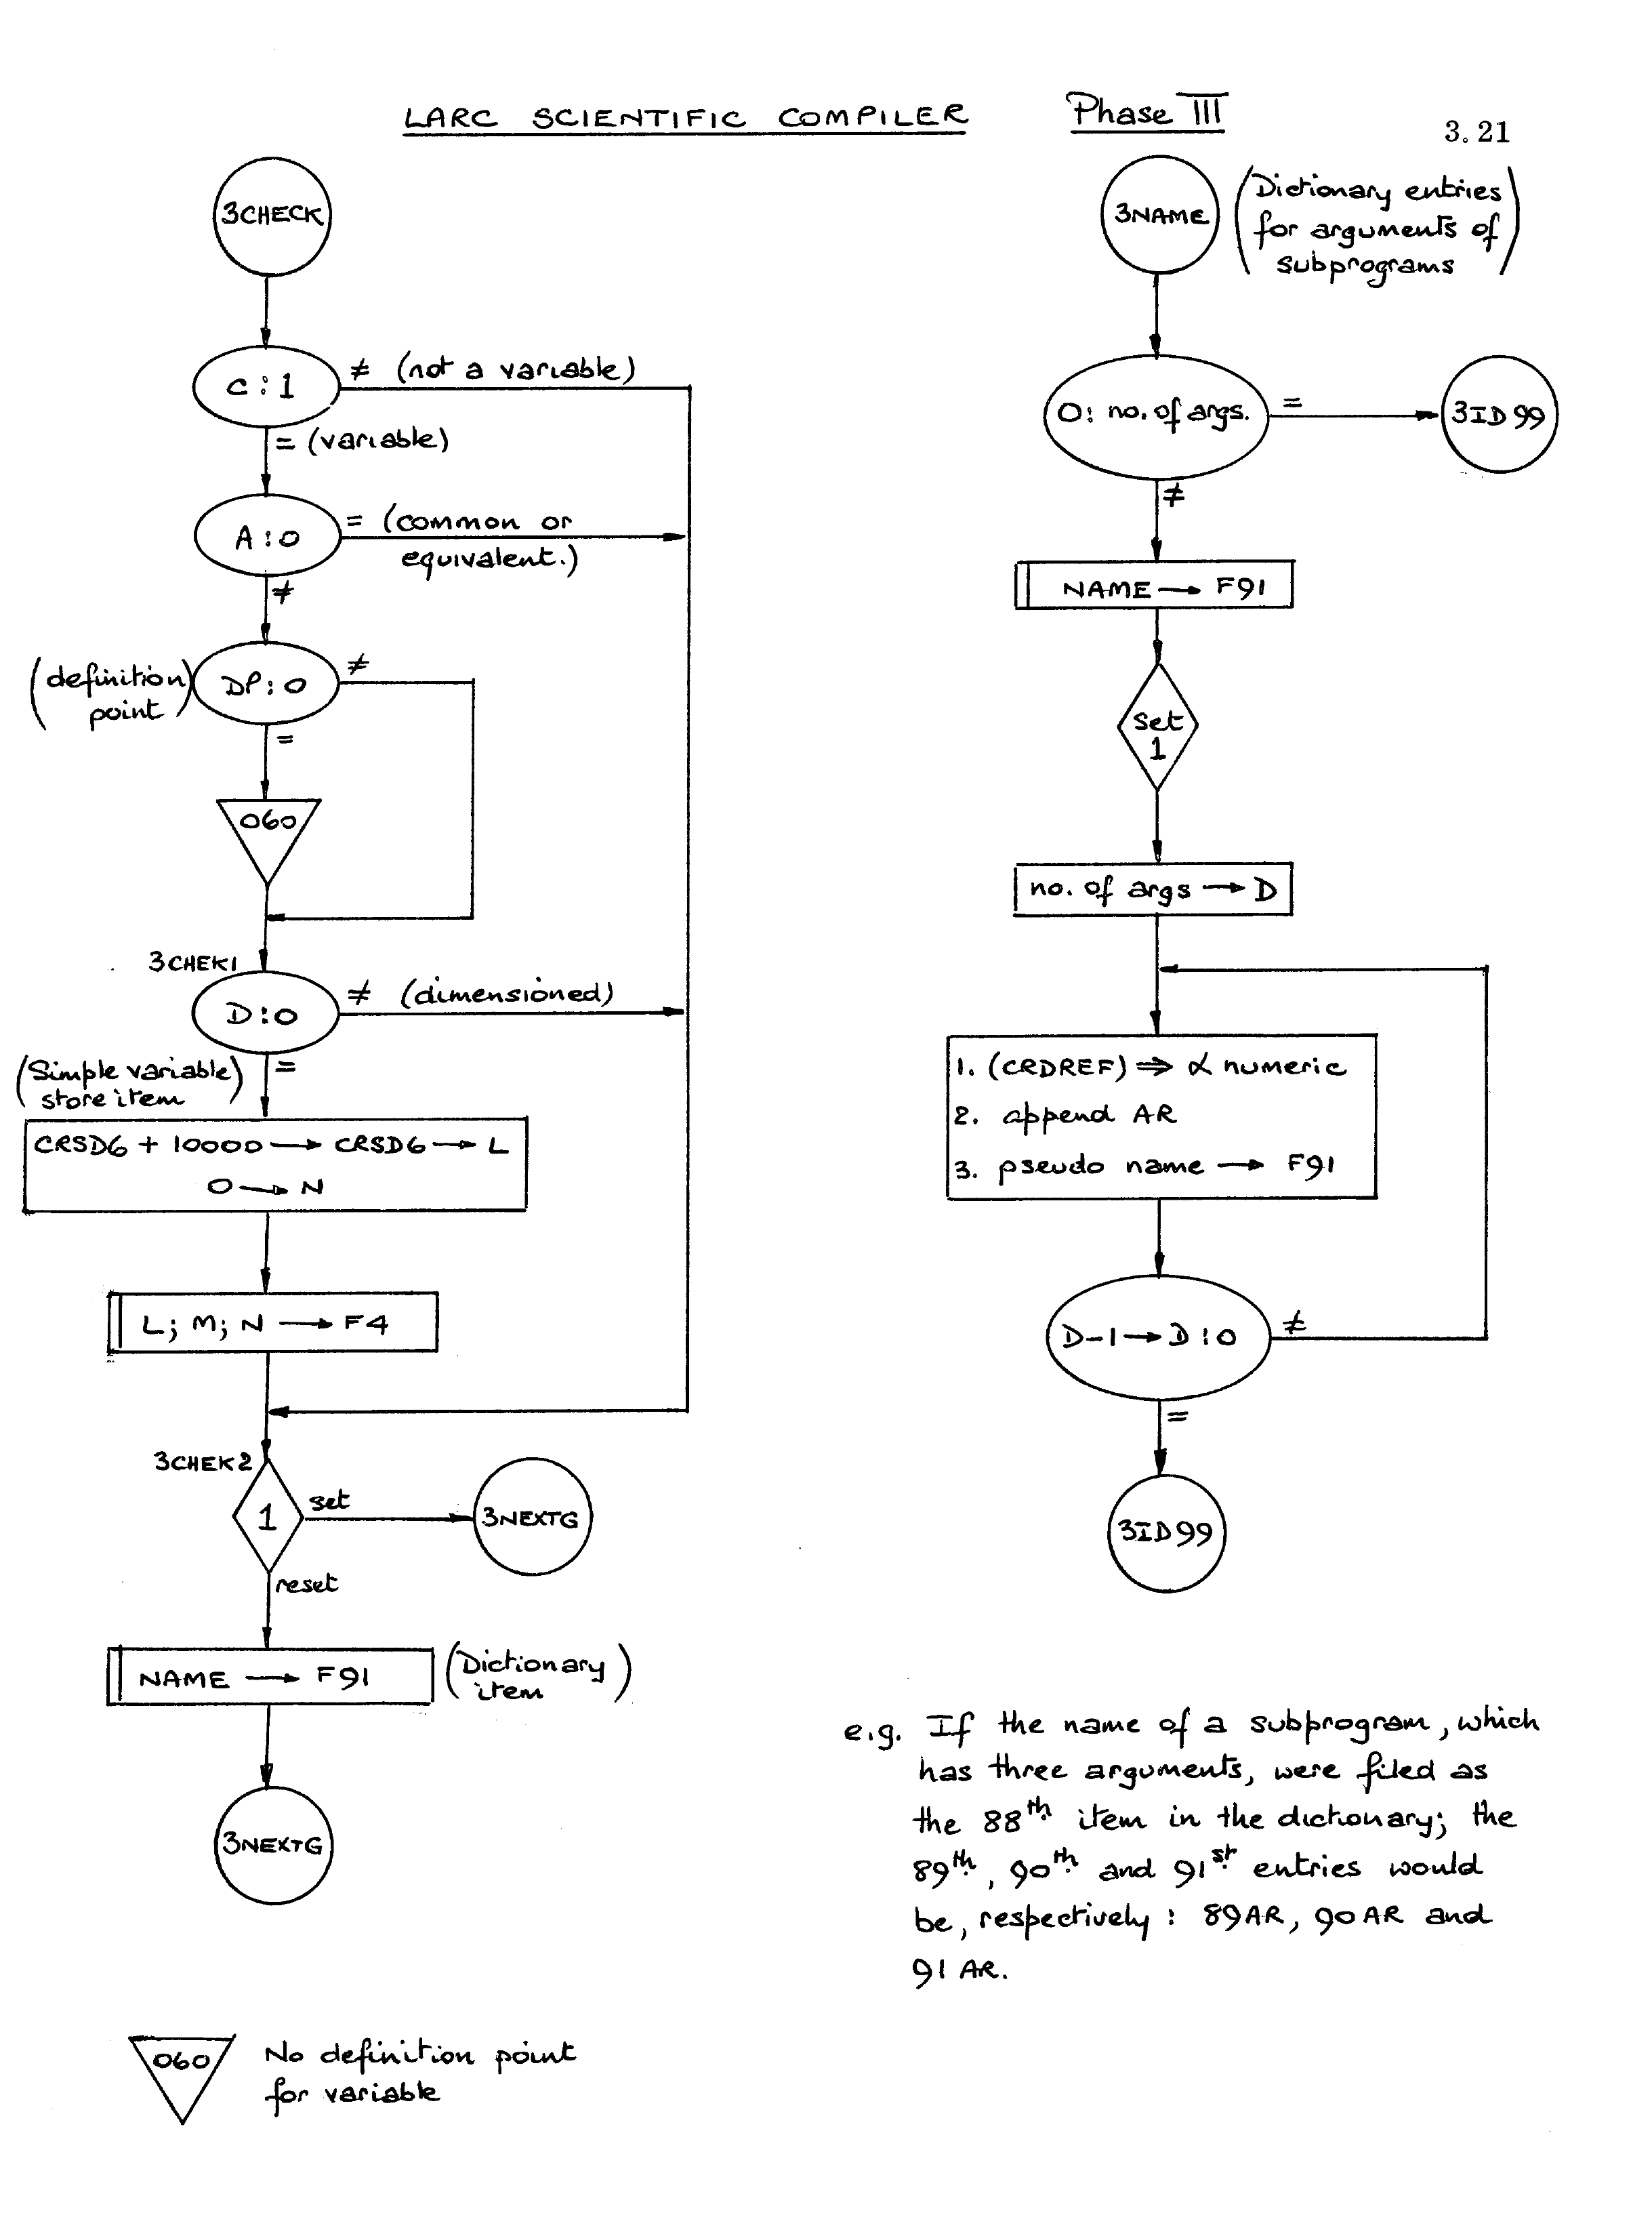 LARC SCIENTIFIC COMPILER Phase III
3.21
3CHECK
C:1
≠ (not a variable)
= (variable)
A:0
= (common or
equivalent.)
≠
(definition
point)
DP:0
≠
=
060
3CHEK1
D:0
≠ (dimensioned)
=
(Simple variable
store item)
CRSD6 + 10000 → CRSD6 → L
0 → N
L; M; N → F4
3CHEK2
1
set
3NEXTG
reset
NAME → F91
(Dictionary
item)
3NEXTG
060
No definition point
for variable
3NAME
(Dictionary entries
for arguments of
subprograms)
0: no. of args.
=
3ID99
≠
NAME → F91
set
1
no. of args → D
1. (CRDREF) ⇒ α numeric
2. append AR
3. pseudo name → F91
D-1 → D:0
≠
=
3ID99
e.g. If the name of a subprogram, which
has three arguments, were filed as
the 88th item in the dictonary; the
89th, 90th and 91st entries would
be, respectively: 89AR, 90AR and
91AR.